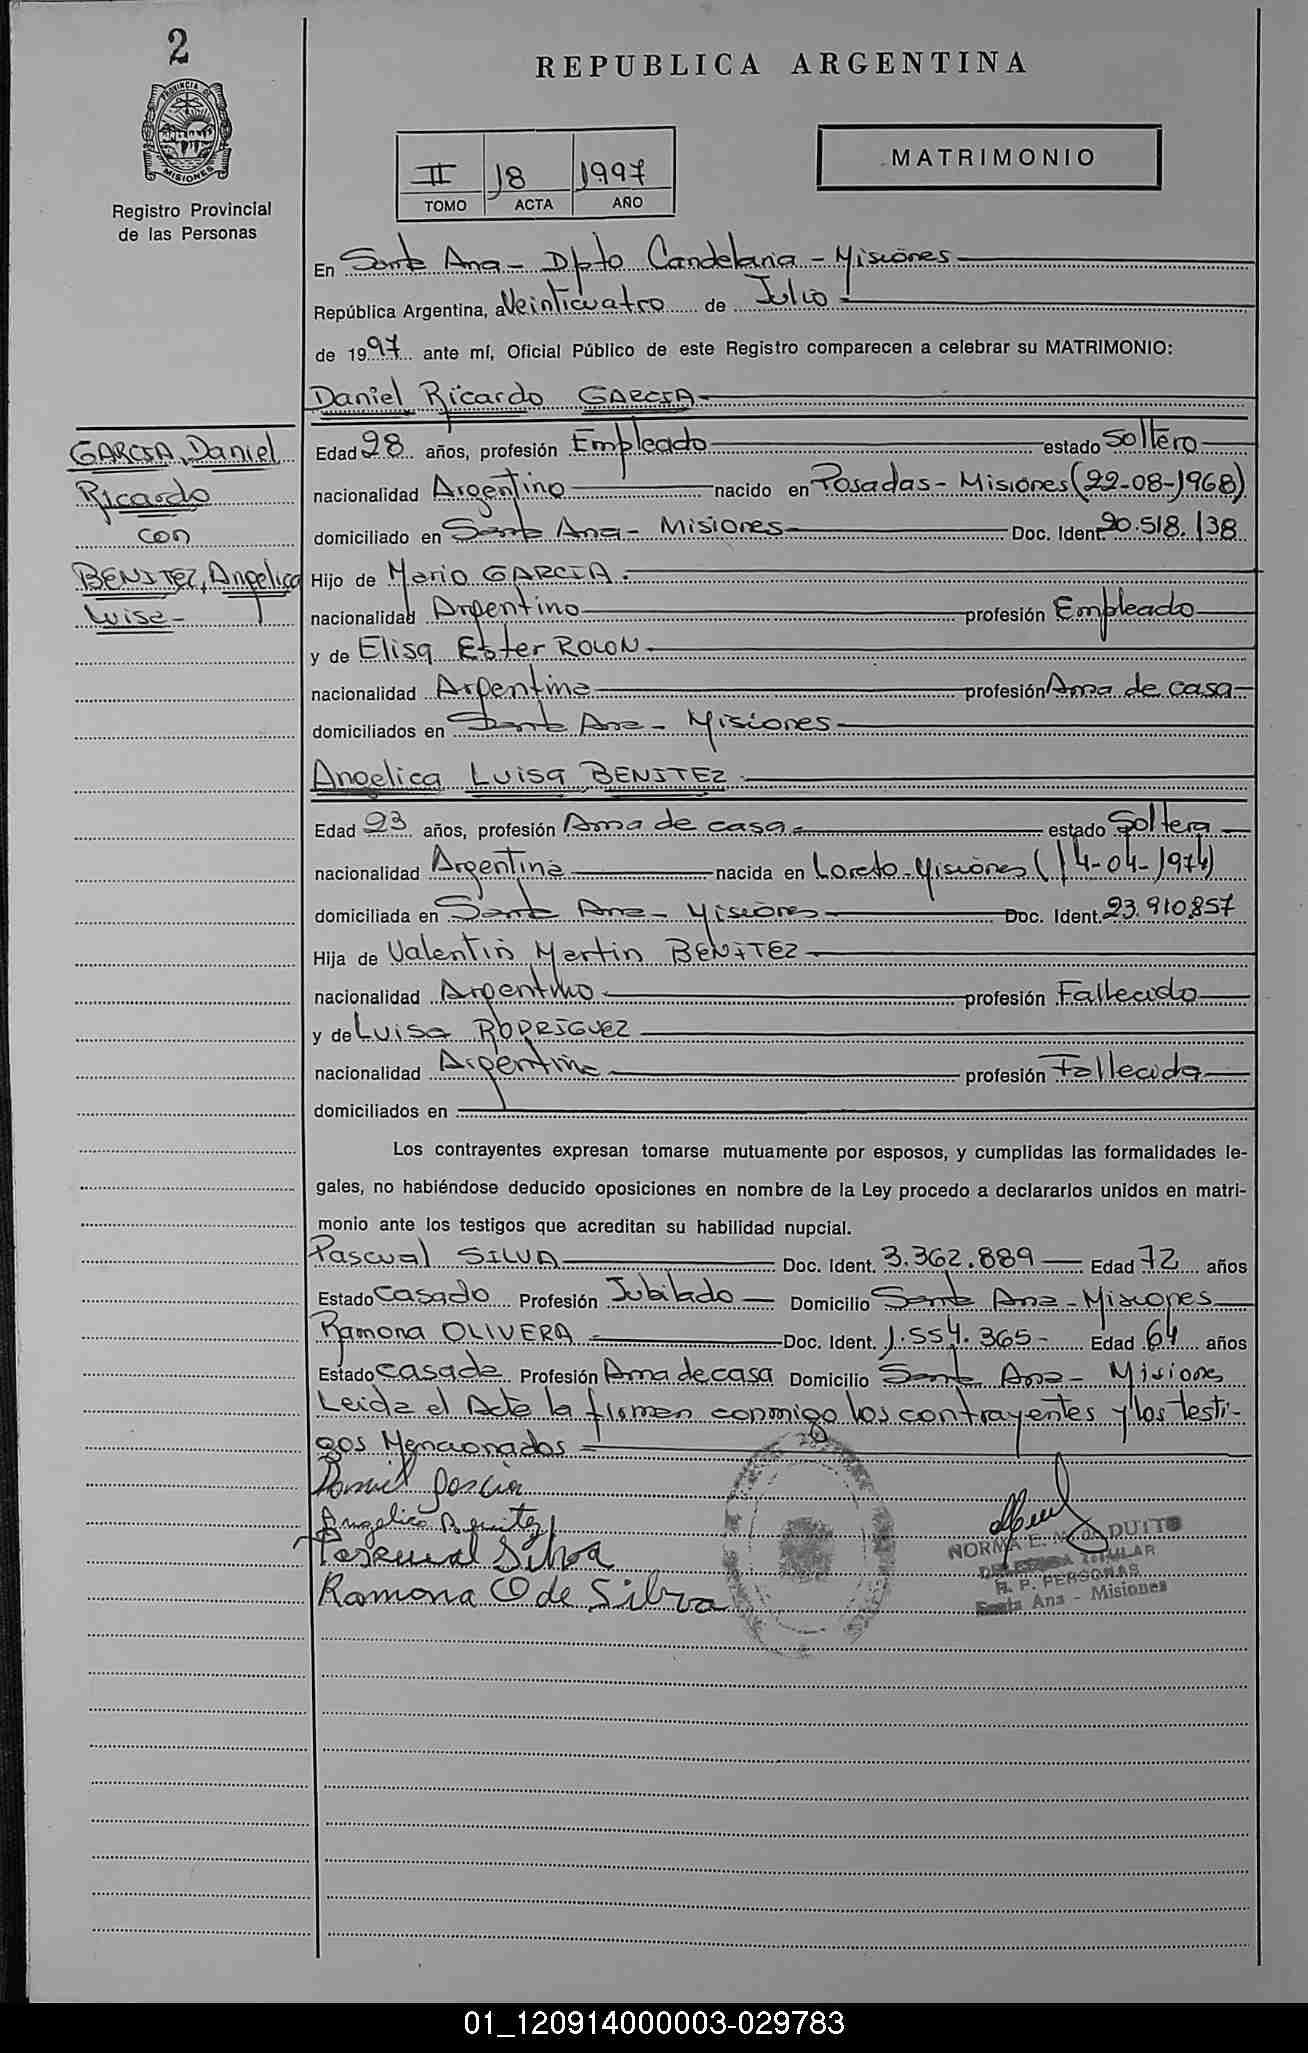 2
PROVINCIA DE
MISIONES
Registro Provincial
de las Personas
REPUBLICA ARGENTINA
II 18 1997
TOMO ACTA AÑO
MATRIMONIO
En Santa Ana - Dpto Candelaria - Misiones
República Argentina, a Veinticuatro de Julio
de 1997 ante mí, Oficial Público de este Registro comparecen a celebrar su MATRIMONIO:
Daniel Ricardo GARCIA
GARCIA, Daniel
Ricardo
con
BENITEZ, Angelica
Luisa -
Edad 28 años, profesión Empleado estado Soltero
nacionalidad Argentino nacido en Posadas - Misiones (22-08-1968)
domiciliado en Santa Ana - Misiones Doc. Ident. 20.518.138
Hijo de Mario GARCIA.
nacionalidad Argentino profesión Empleado
y de Elisa Ester ROLON
nacionalidad Argentina profesión Ama de casa
domiciliados en Santa Ana - Misiones
Angelica Luisa BENITEZ
Edad 23 años, profesión Ama de casa estado Soltera
nacionalidad Argentina nacida en Loreto - Misiones (14-04-1974)
domiciliada en Santa Ana - Misiones Doc. Ident. 23.910.857
Hija de Valentin Martin BENITEZ
nacionalidad Argentino profesión Fallecido
y de Luisa RODRIGUEZ
nacionalidad Argentina profesión Fallecida
domiciliados en
Los contrayentes expresan tomarse mutuamente por esposos, y cumplidas las formalidades le-
gales, no habiéndose deducido oposiciones en nombre de la Ley procedo a declararlos unidos en matri-
monio ante los testigos que acreditan su habilidad nupcial.
Pascual SILVA Doc. Ident. 3.362.889 Edad 72 años
Estado Casado Profesión Jubilado Domicilio Santa Ana - Misiones
Ramona OLIVERA Doc. Ident. 1.554.365 - Edad 64 años
Estado Casada Profesión Ama de casa Domicilio Santa Ana - Misiones
Leida el Acta la firman conmigo los contrayentes y los testi-
gos Mencionados
Daniel Garcia
Angelica Benitez
Pascual Silva
Ramona O de Silva
NORMA E. DUITO
DELEGADA TITULAR
R. P. PERSONAS
Santa Ana - Misiones
01_120914000003-029783